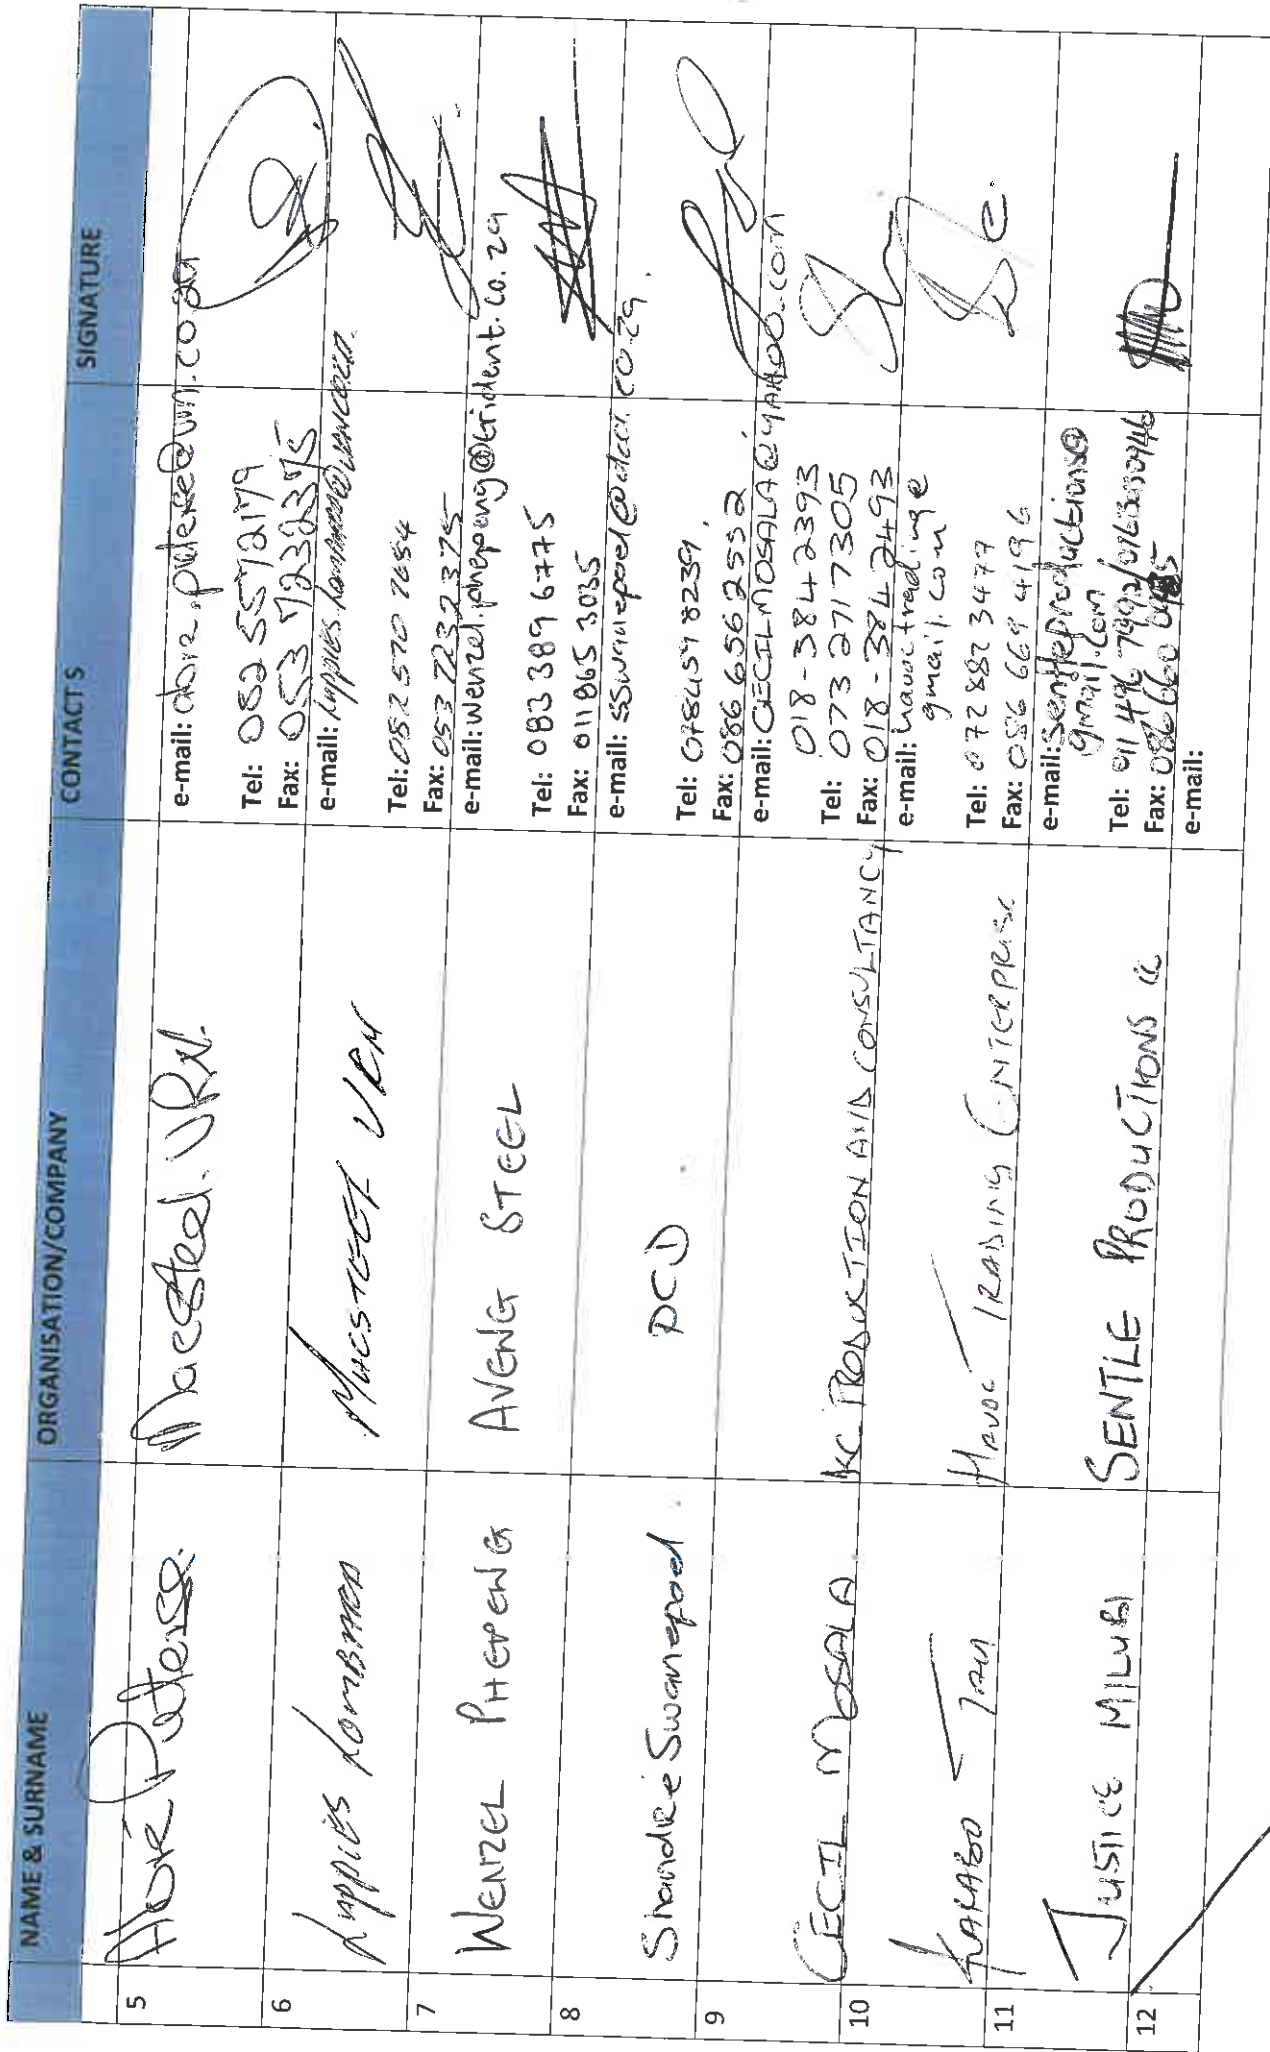 NAME & SURNAME ORGANISATION/COMPANY CONTACTS SIGNATURE
5 Pieterse. Macsteel. VRN.
e-mail:
Tel: 082 5572179
Fax: 053 7232375
6 Luppies Lombard Macsteel VRN
e-mail: luppies.lombard@
Tel: 082 570 7654
Fax: 053 7232375
7 WENZEL PHEPENG AVENG STEEL
e-mail: wenzel.phepeng@trident.co.za
Tel: 083 389 6775
Fax: 011 865 3035
8 Shandré Swanepoel DCD
e-mail: sswanepoel@dcd.co.za.
Tel: 0784598239.
Fax: 086 656 2552
9 CECIL MOSALA KC PRODUCTION AND CONSULTANCY
e-mail: CECILMOSALA@YAHOO.COM
018-384 2393
Tel: 073 271 7305
Fax: 018-384 2493
10 KARABO HAVOC TRADING ENTERPRISE
e-mail: havoctrading@
gmail.com
Tel: 072 882 3477
Fax: 086 669 4196
11 JUSTICE MILUBI SENTLE PRODUCTIONS cc
e-mail: sentleproductions@
gmail.com
Tel: 011 496 7992/
Fax: 086 660
12
e-mail: